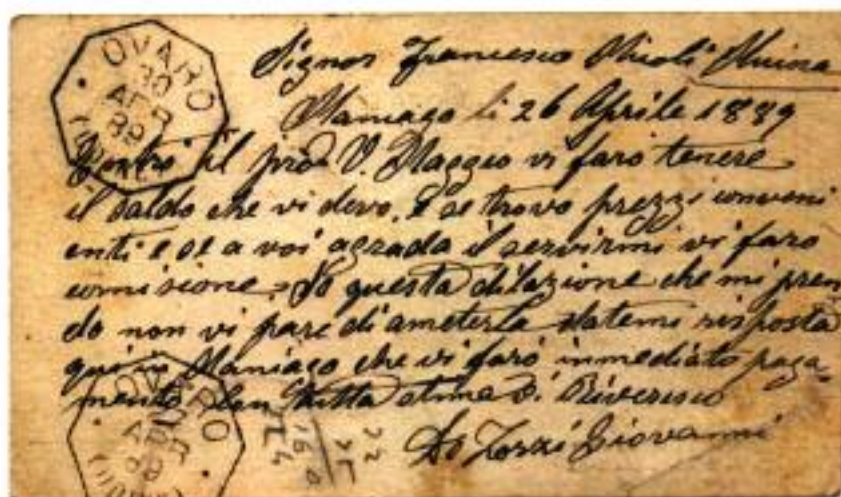 Signor Francesco Micoli Muina
Maniago li 26 Aprile 1889
Entro il pros. V. Maggio vi farò tenere
il saldo che vi devo. E se trovo prezzi conveni
enti e se a voi agrada il servirmi vi faro
comisione. Se questa dilazione che mi pren
do non vi pare di ameterla datemi risposta
qui in Maniago che vi farò immediato paga-
mento. Con tutta stima vi Riverisco
Zorzi Giovanni
OVARO
30
APR
89
(UDINE)
OVARO
APR